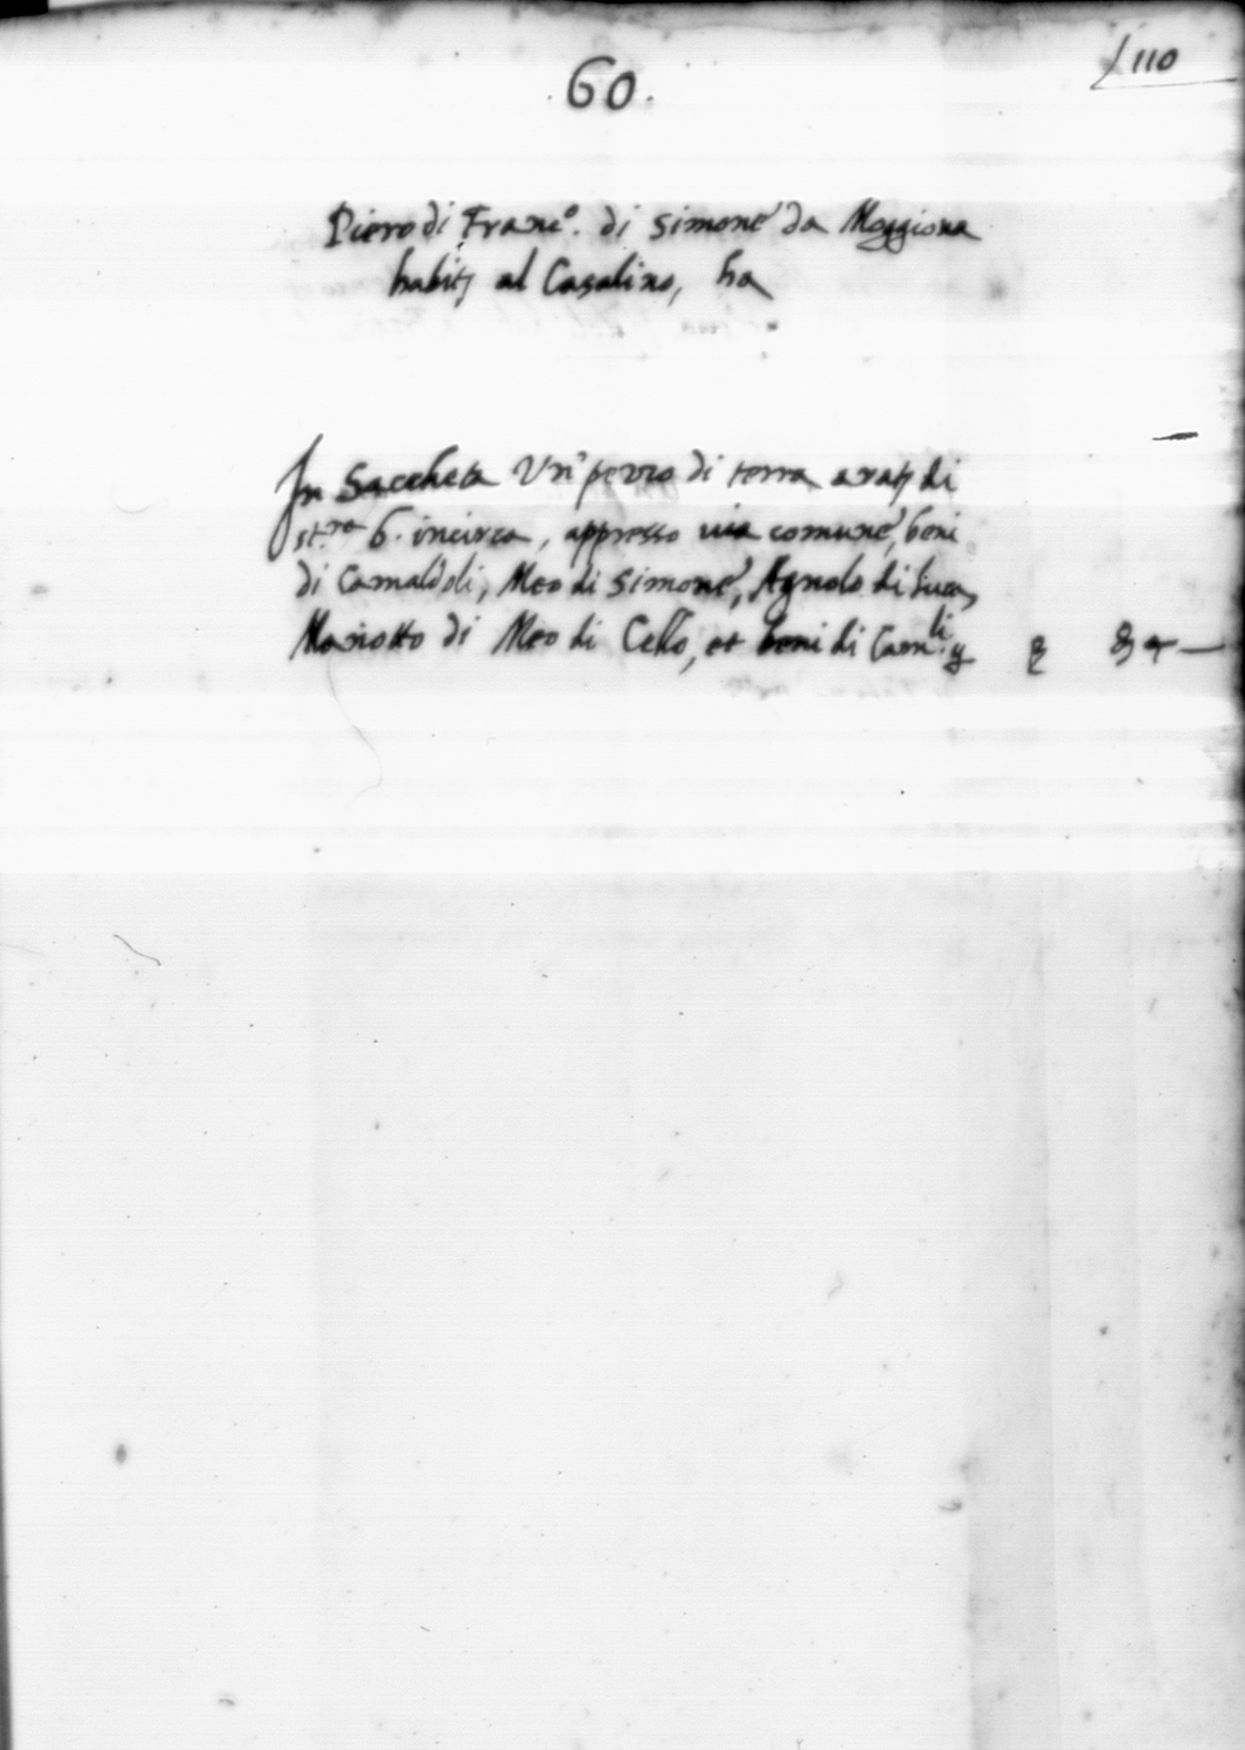 110
.60.
Piero di Franc.o di Simone da Moggiona
habit. al Casalino, ha
In Saccheta Un' pezzo di terra arat. di
st.ra 6. incirca, appresso via comune, beni
di Camaldoli, Meo di Simone, Agnolo di Luca,
Mariotto di Meo di Cello, et beni di Cam.li